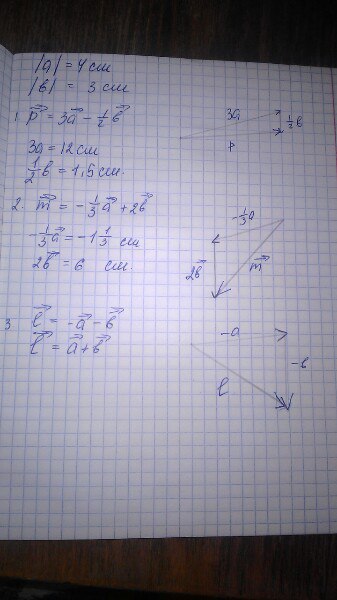 |a| = 4 см
|b| = 3 см
1. p⃗ = 3a⃗ - ½b⃗
3a = 12 см
½b = 1,5 см.
3a
½b
p
2. m⃗ = -⅓a⃗ + 2b⃗
-⅓a⃗ = -1⅓ см
2b⃗ = 6 см.
-⅓a
2b⃗
m⃗
3 ℓ⃗ = -a⃗ - b⃗
ℓ⃗ = a⃗ + b⃗
-a
-b
ℓ